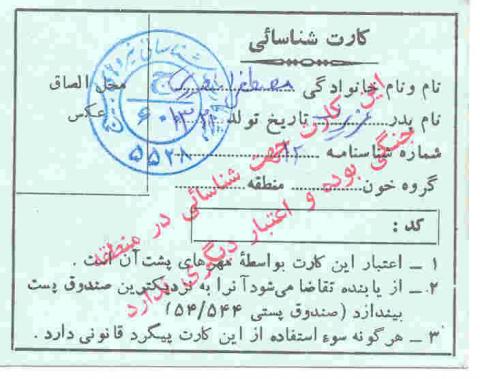 کارت شناسائی
نام و نام خانوادگی مصطفی
محل الصاق
عکس
نام پدر تاریخ تولد
شماره شناسنامه ۱۲
گروه خون منطقه
کد :
۱ ـ اعتبار این کارت بواسطهٔ مهرهای پشت آن است .
۲ ـ از یابنده تقاضا می‌شود آنرا به نزدیکترین صندوق پست
بیندازد (صندوق پستی ۵۴/۵۴۴)
۳ ـ هرگونه سوء استفاده از این کارت پیگرد قانونی دارد .
این کارت جهت شناسائی در منطقه
جنگی بوده و اعتبار دیگری ندارد
۵۵۲۸